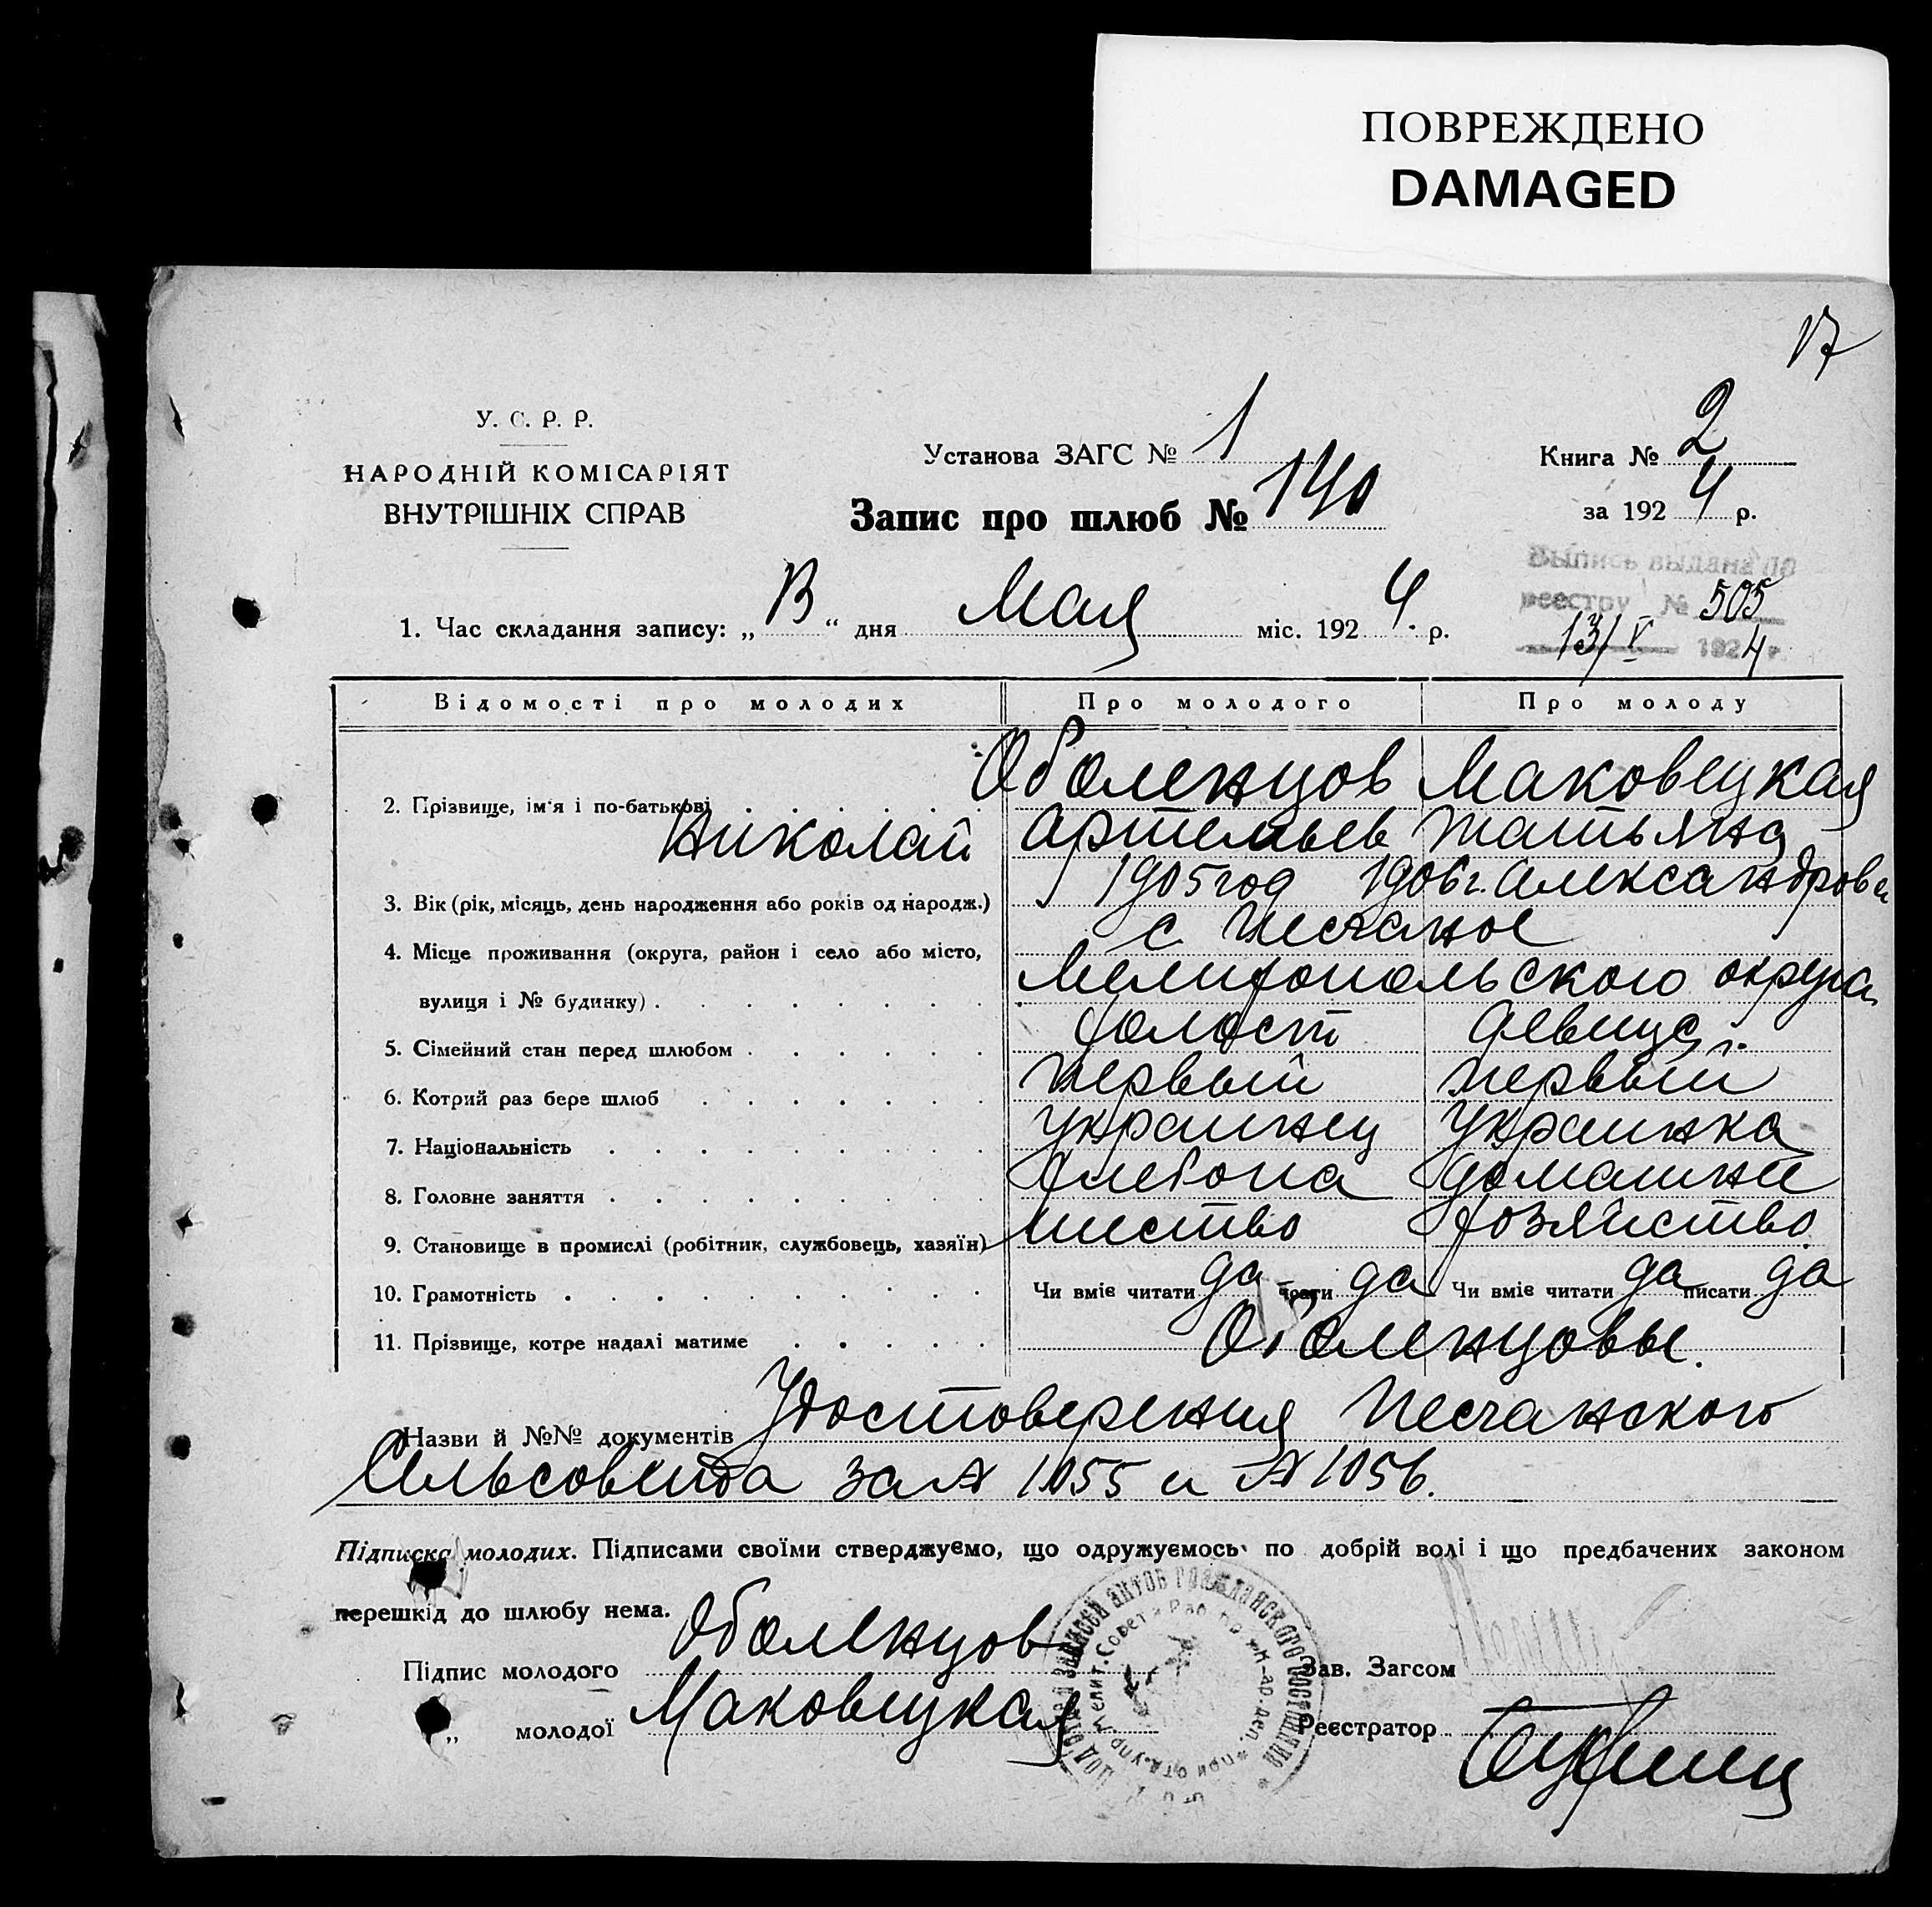 ПОВРЕЖДЕНО
DAMAGED
17
У. С. Р. Р.
НАРОДНІЙ КОМІСАРІЯТ
ВНУТРІШНІХ СПРАВ
Установа ЗАГС № 1
Запис про шлюб № 140
Книга № 2
за 1924 р.
Выпись выдана по
реестру № 505
13/V 1924 г.
1. Час складання запису: „13“ дня Мая міс. 1924 р.
Відомості про молодих Про молодого Про молоду
2. Прізвище, ім'я і по-батькові Оболенцов Маковецкая
Николай Артемьев Татьяна
3. Вік (рік, місяць, день народження або років од народж.) 1905 год 1906 г. Александрова
с Песчаное
4. Місце проживання (округа, район і село або місто,
вулиця і № будинку) Мелитопольского округа
5. Сімейний стан перед шлюбом холост девица
6. Котрий раз бере шлюб первый первый
7. Національність украинец украинка
8. Головне заняття хлебопа домашнее
9. Становище в промислі (робітник, службовець, хазяїн) шество хозяйство
10. Грамотність Чи вміє читати да писати да Чи вміє читати да писати да
11. Прізвище, котре надалі матиме Оболенцовы.
Назви й №№ документів Удостоверения Песчанского
Сельсовета за № 1055 и № 1056.
Підписка молодих. Підписами своїми стверджуємо, що одружуємось по добрій волі і що предбачених законом
перешкід до шлюбу нема.
Підпис молодого Оболенцов
Зав. Загсом
„ молодої Маковецкая
Реєстратор
записей актов гражданского состояния